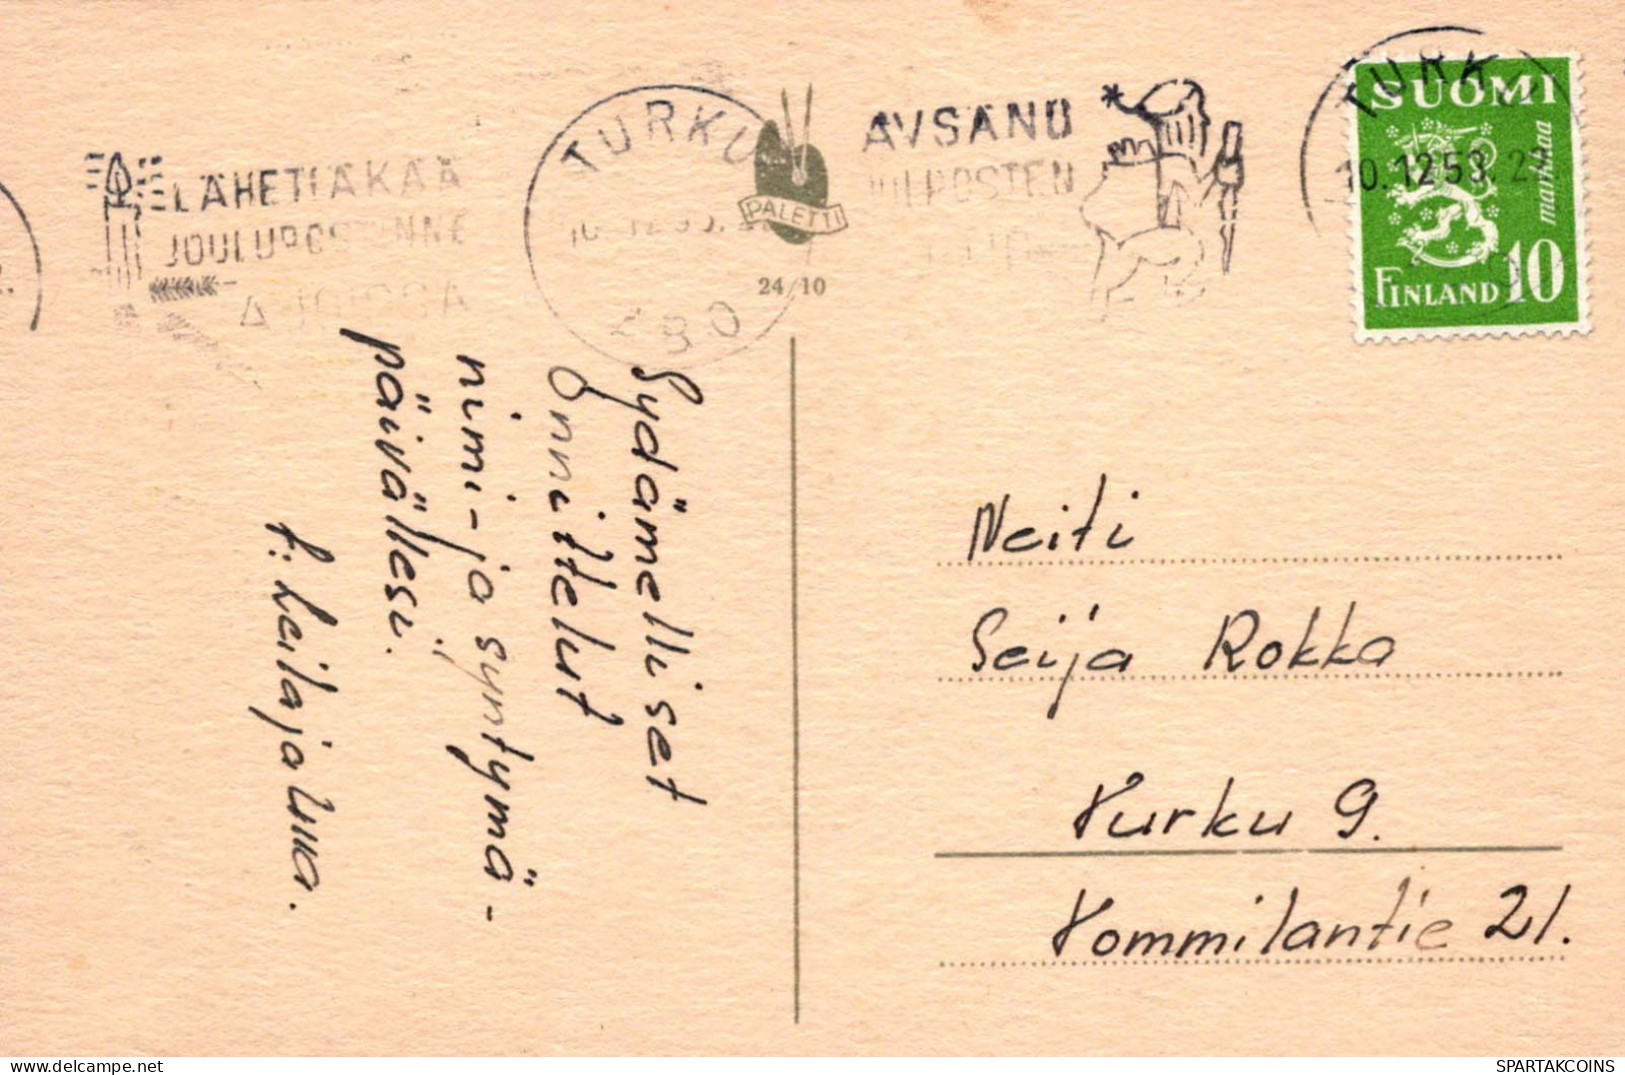 LÄHETTÄKÄÄ
JOULUPOSTINNE
AJOISSA
TURKU
10.12.53.
ÅBO
PALETTI
24/10
AVSÄND
JULPOSTEN
TURKU
10.12.53. 21.
SUOMI
markkaa
FINLAND 10
Sydämelliset
Onnittelut
nimi- ja syntymä-
päivällesi.
t: Leila ja Ulla.
Neiti
Seija Rokka
Turku 9.
Tommilantie 21.
SPARTAKCOINS